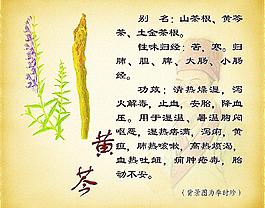 别名：山茶根、黄芩
茶、土金茶根。
性味归经：苦，寒。归
肺、胆、脾、大肠、小肠
经。
功效：清热燥湿，泻
火解毒，止血，安胎，降血
压。用于湿温、暑温胸闷
呕恶，湿热痞满，泻痢，黄
疸，肺热咳嗽，高热烦渴，
血热吐衄，痈肿疮毒，胎
动不安。
（背景图为李时珍）
黄
芩